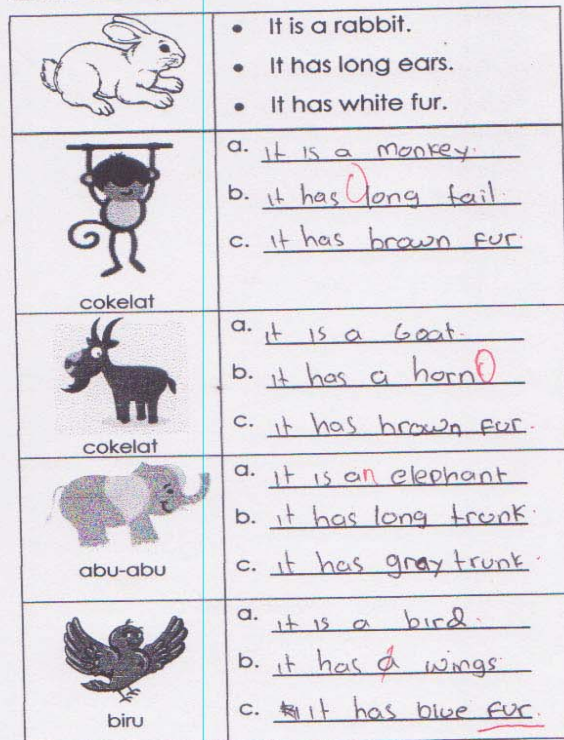 • It is a rabbit.
• It has long ears.
• It has white fur.
a. it is a monkey.
b. it has long tail.
c. it has brown fur.
cokelat
a. it is a Goat.
b. it has a horn
c. it has brown fur.
cokelat
a. it is an elephant
b. it has long trunk.
c. it has gray trunk.
abu-abu
a. it is a bird.
b. it has a wings.
c. it has blue fur.
biru